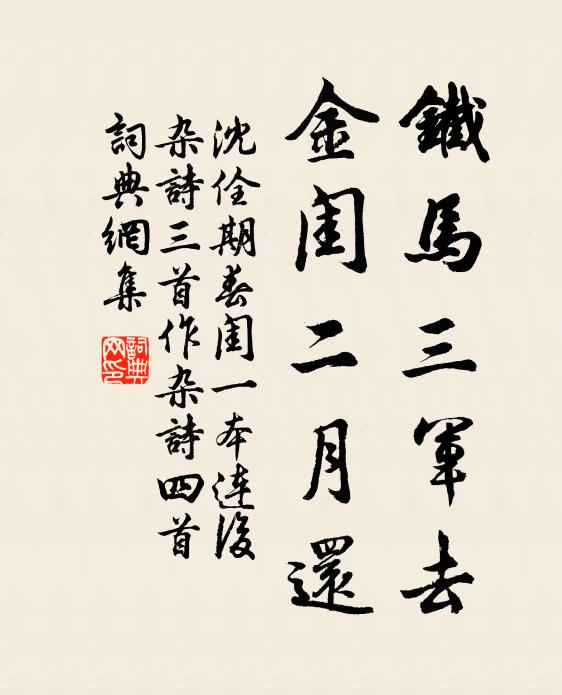 鐵馬三軍去
金閨二月還
沈佺期春閨一本連後
杂詩三首作杂詩四首
詞典網集
詞典網印